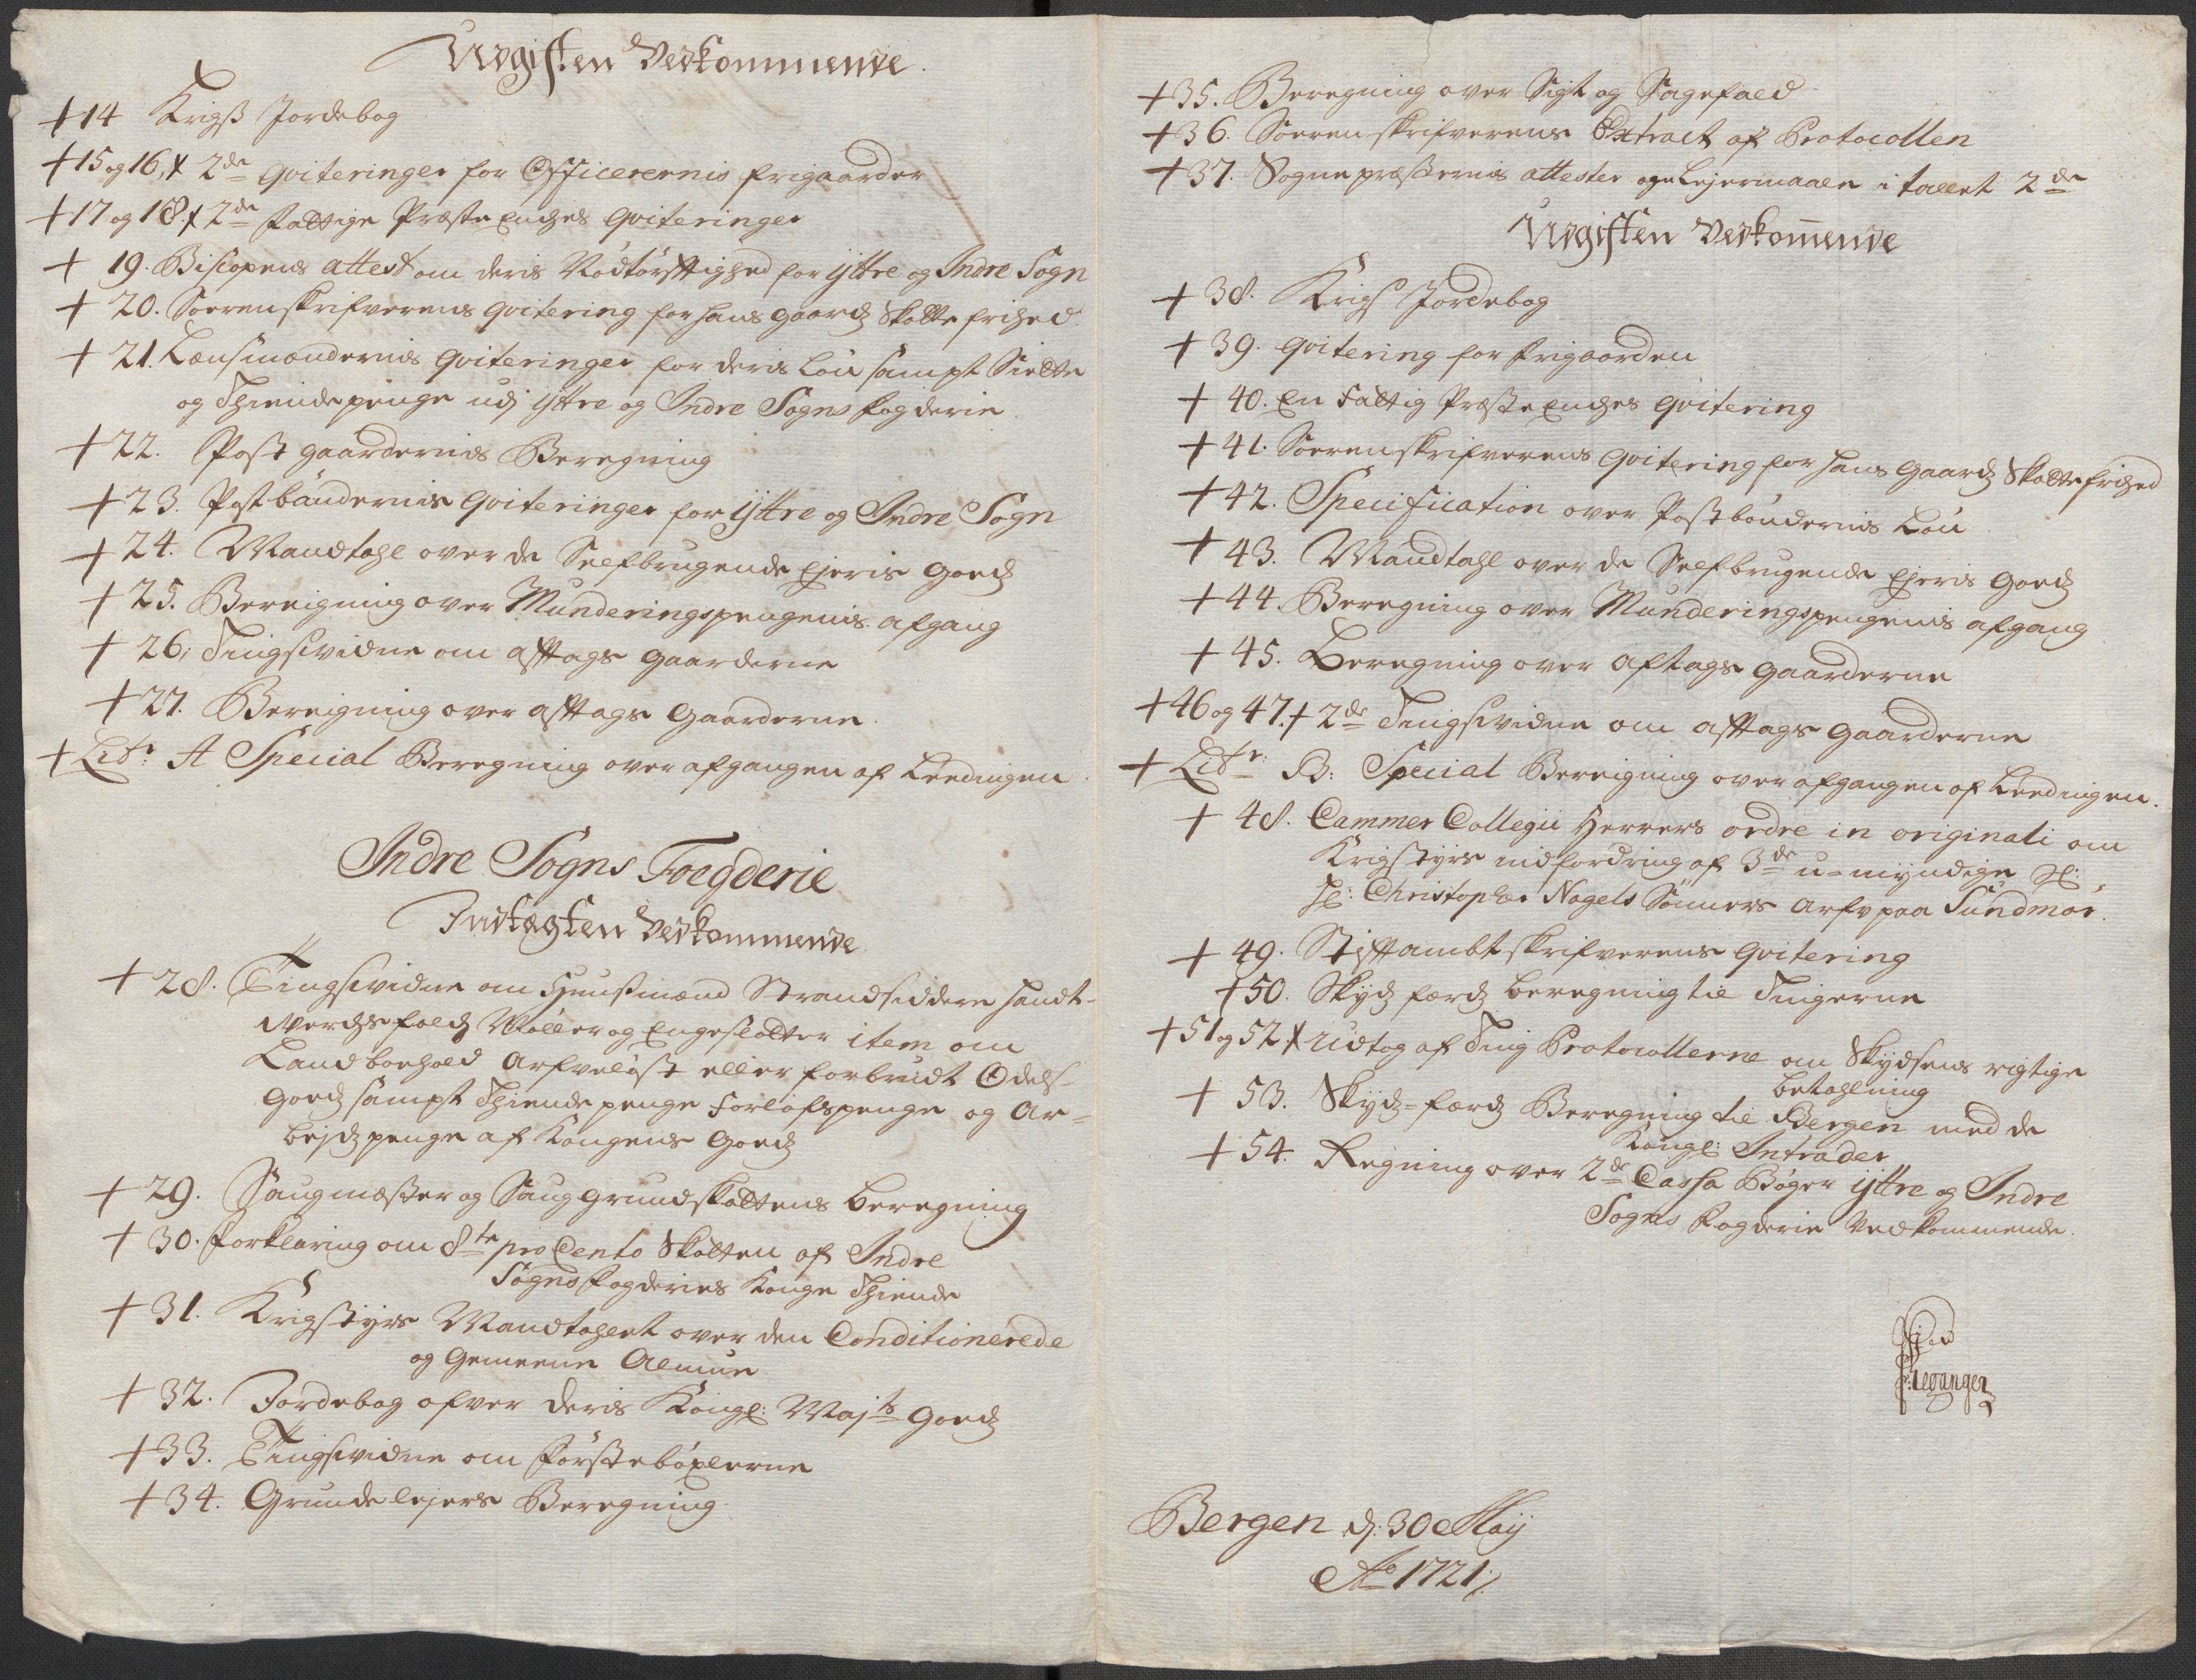 Udgiften Vedkommende.
+ 14 Krigs Jordebog
+ 15 og 16, + 2de qviteringer for Officerernis frigaarder
+ 17 og 18. + 2de fattige Præste Enchers qviteringer
+ 19. Biscopens attest om deris Nødtørfftighed for ÿttre og Indre Sogn
+ 20. Sorenskrifverens qvitering for hans gaards Skatte frihed.
+ 21. Lænsmændernis qviteringer for deris Løn sampt Siette
og Thiende penge udj ÿttre og Indre Sogns fogderie
+ 22. Post gaardernis Beregning
+ 23. Postbøndernis qviteringer for ÿttre og Indre Sogn
+ 24. Mandtahl over de Selfbrugende Ejeris Goeds
+ 25. Bereigning over Munderingspengenis afgang
+ 26. Tingsvidne om afftags gaarderne
+ 27. Bereigning over afftags Gaarderne.
+ Litr. A Special Beregning over afgangen af Leedingen.
Indre Sogns Foegderie
Indtægten Vedkommende
+ 28. Tingsvidne om Huusmænd Strandsiddere handt-
verchsfolch Møller og Engeslotter item om
Landboehold Arfveløst eller forbrudt Odels-
Goeds sampt Thiende penge Forlofspenge og Ar-
bejdspenge af Kongens Goeds
+ 29. Saugmester og Saug Grundskattens beregning
+ 30. Forklaring om 8te pro Cento Skatten af Indre
Sogns Fogderies Konge Thiende
+ 31. Krigstÿrs Mandtahlet over den Conditionerede
og Gemeene Almue
+ 32. Jordebog ofver deris Kongl: Majts Goeds
+ 33. Tingsvidne om første bøxlerne
+ 34. Grundelejers Beregning.
+ 35. Beregning over Sigt og Sagefald
+ 36. Sorenskrifverens Extract af Protocollen
+ 37. Sognepræsternis attester om Lejermaalen i tallet 2de
Udgiften Vedkom̄ende
+ 38. Krigs Jordebog
+ 39. qvitering for frigaarden
+ 40. En Fattig Præste Enches qvitering
+ 41. Sorenskrifverens qvitering for hans Gaards Skatte frihed
+ 42. Specification over Postbøndernis Løn
+ 43. Mandtahl over de Selfbrugende Ejeris Goeds
+ 44. Beregning over Munderingspengenis afgang
+ 45. Beregning over aftags gaarderne
+ 46 og 47. + 2de Tingsvidne om afftags gaarderne
+ Litr: B: Special Bereigning over afgangen af Leedingen.
+ 48. Cammer Collegii Herrers ordre in originali om
Krigstÿrs indfordring af 3de u-mÿndige Sl:
Hr: Christopher Nagels Sønners Arf paa Sundmør.
+ 49. Stifftambtskrifverens qvitering
+ 50. Skÿds færds beregning til Tingerne
+ 51 og 52 + Udtog af Ting Protocollerne om Skÿdsens rigtige
betahlning
+ 53. Skÿds-færds Beregning til Bergen med de
Kongl: Intrader
+ 54. Regning over 2de Cassa Bøger ÿttre og Indre
Sogns Fogderie Vedkommende.
Bergen d: 30 Maÿ
Ao 1721